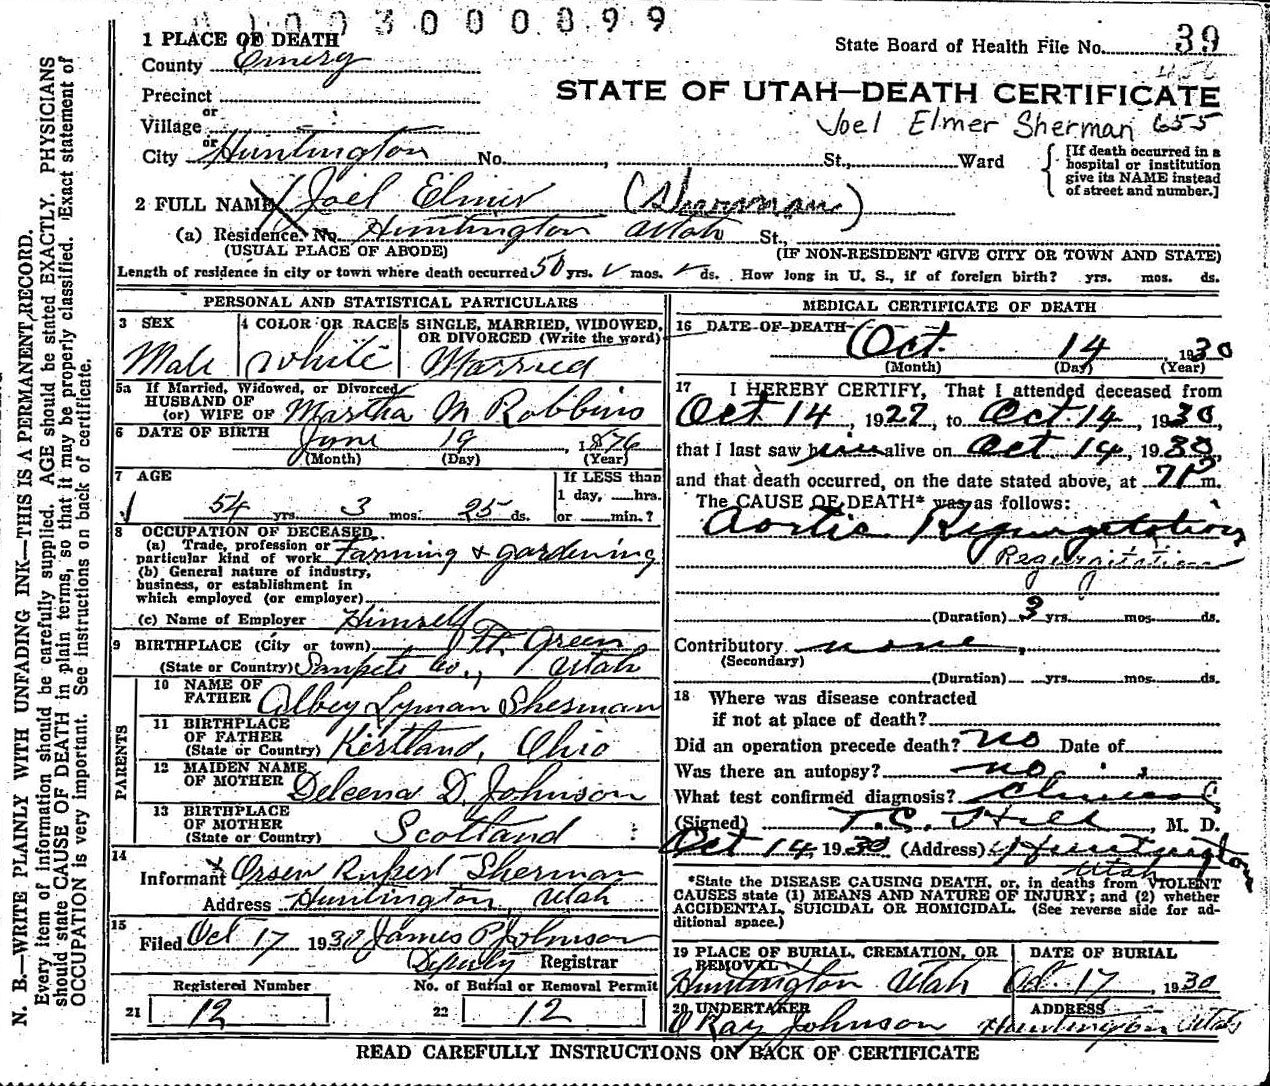 3000899
1 PLACE OF DEATH
County Emery
State Board of Health File No. 39
Precinct
STATE OF UTAH—DEATH CERTIFICATE
or
Village
Joel Elmer Sherman 655
or
City Huntington No. , St., Ward
[If death occurred in a hospital or institution give its NAME instead of street and number.]
2 FULL NAME Joel Elmer (Sherman)
(a) Residence. No. Huntington Utah St.,
(USUAL PLACE OF ABODE) (IF NON-RESIDENT GIVE CITY OR TOWN AND STATE)
Length of residence in city or town where death occurred 50 yrs. mos. ds. How long in U. S., if of foreign birth? yrs. mos. ds.
PERSONAL AND STATISTICAL PARTICULARS
3 SEX
Male
4 COLOR OR RACE
White
5 SINGLE, MARRIED, WIDOWED,
OR DIVORCED (Write the word)
Married
5a If Married, Widowed, or Divorced
HUSBAND OF
(or) WIFE OF Martha M Robbins
6 DATE OF BIRTH
June 19, 1876
(Month) (Day) (Year)
7 AGE
54 yrs. 3 mos. 25 ds.
If LESS than
1 day, hrs.
or min.?
8 OCCUPATION OF DECEASED
(a) Trade, profession or
particular kind of work Farming & gardening
(b) General nature of industry,
business, or establishment in
which employed (or employer)
(c) Name of Employer Himself
9 BIRTHPLACE (City or town) Ft. Green
(State or Country) Sanpete Co., Utah
PARENTS
10 NAME OF
FATHER Albey Lyman Sherman
11 BIRTHPLACE
OF FATHER
(State or Country) Kirtland, Ohio
12 MAIDEN NAME
OF MOTHER Deleena D. Johnson
13 BIRTHPLACE
OF MOTHER
(State or Country) Scotland
14
Informant Orsen Rupert Sherman
Address Huntington, Utah
15
Filed Oct 17 1930 James P Johnson
Deputy Registrar
Registered Number
21 12
No. of Burial or Removal Permit
22 12
MEDICAL CERTIFICATE OF DEATH
16 DATE OF DEATH
Oct. 14, 1930
(Month) (Day) (Year)
17 I HEREBY CERTIFY, That I attended deceased from
Oct 14, 1927, to Oct. 14, 1930,
that I last saw him alive on Oct 14, 1930,
and that death occurred, on the date stated above, at 7 P m.
The CAUSE OF DEATH* was as follows:
Aortic Regurgetation
Regurgitation
(Duration) 3 yrs. mos. ds.
Contributory none
(Secondary)
(Duration) yrs. mos. ds.
18 Where was disease contracted
if not at place of death?
Did an operation precede death? no Date of
Was there an autopsy? no
What test confirmed diagnosis?
(Signed) T.C. Hill, M. D.
Oct 14, 1930 (Address) Huntington
Utah
*State the DISEASE CAUSING DEATH, or, in deaths from VIOLENT
CAUSES state (1) MEANS AND NATURE OF INJURY; and (2) whether
ACCIDENTAL, SUICIDAL OR HOMICIDAL. (See reverse side for ad-
ditional space.)
19 PLACE OF BURIAL, CREMATION, OR
REMOVAL
Huntington Utah
DATE OF BURIAL
Oct. 17, 1930
20 UNDERTAKER
O Ray Johnson
ADDRESS
Huntington Utah
READ CAREFULLY INSTRUCTIONS ON BACK OF CERTIFICATE
N. B.—WRITE PLAINLY WITH UNFADING INK—THIS IS A PERMANENT RECORD.
Every item of information should be carefully supplied. AGE should be stated EXACTLY. PHYSICIANS
should state CAUSE OF DEATH in plain terms, so that it may be properly classified. Exact statement of
OCCUPATION is very important. See instructions on back of certificate.